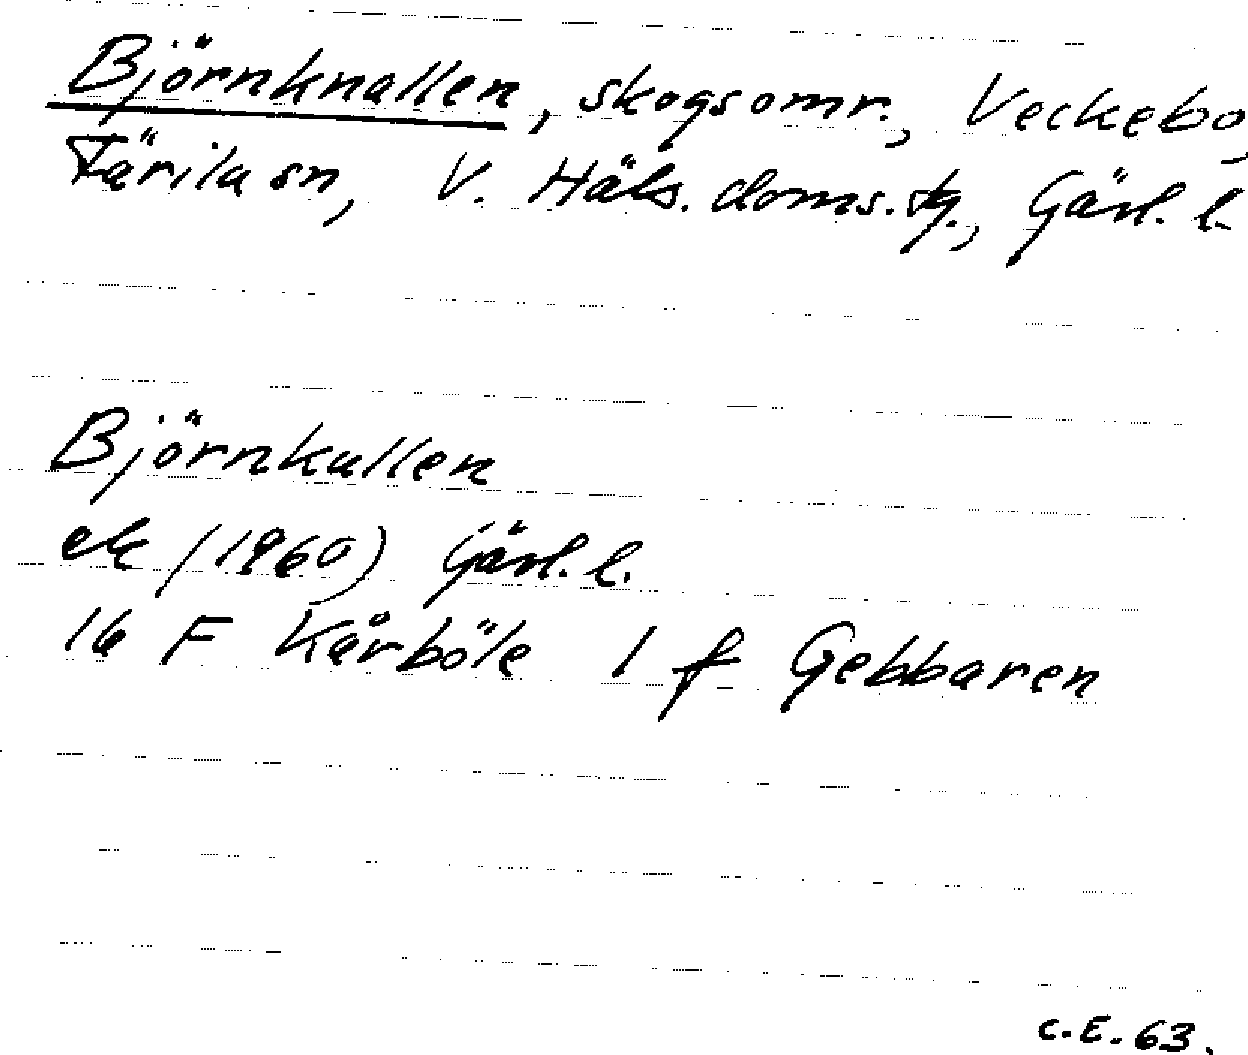 Björnknallen, skogsomr., Veckebo,
Färila sn, V. Häls. doms. tg., Gävl. l.
Björnkullen
ek (1960) Gävl. l.
16 F Kårböle 1 f Gebbaren
C.E. 63.